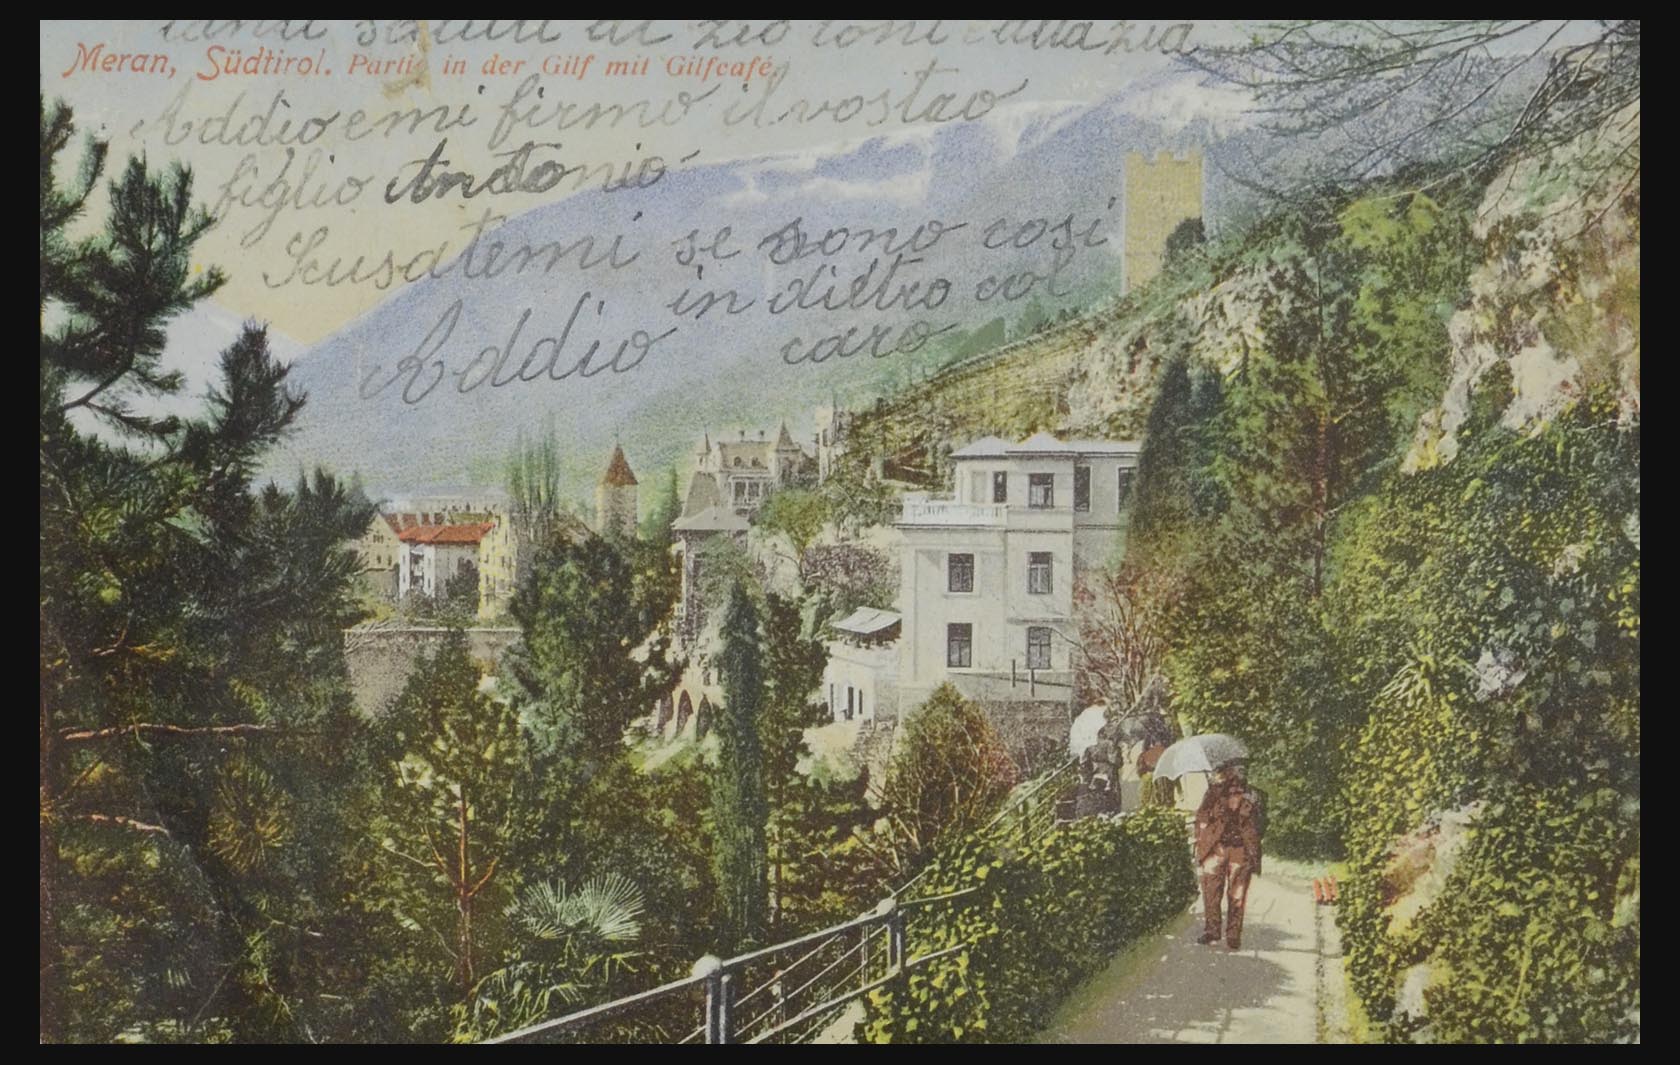 tanti saluti di zio toni e alla zia
Meran, Südtirol. Partie in der Gilf mit Gilfcafé.
Addio e mi firmo il vostro
figlio Antonio
Scusatemi se sono cosi
in dietro col
Addio caro